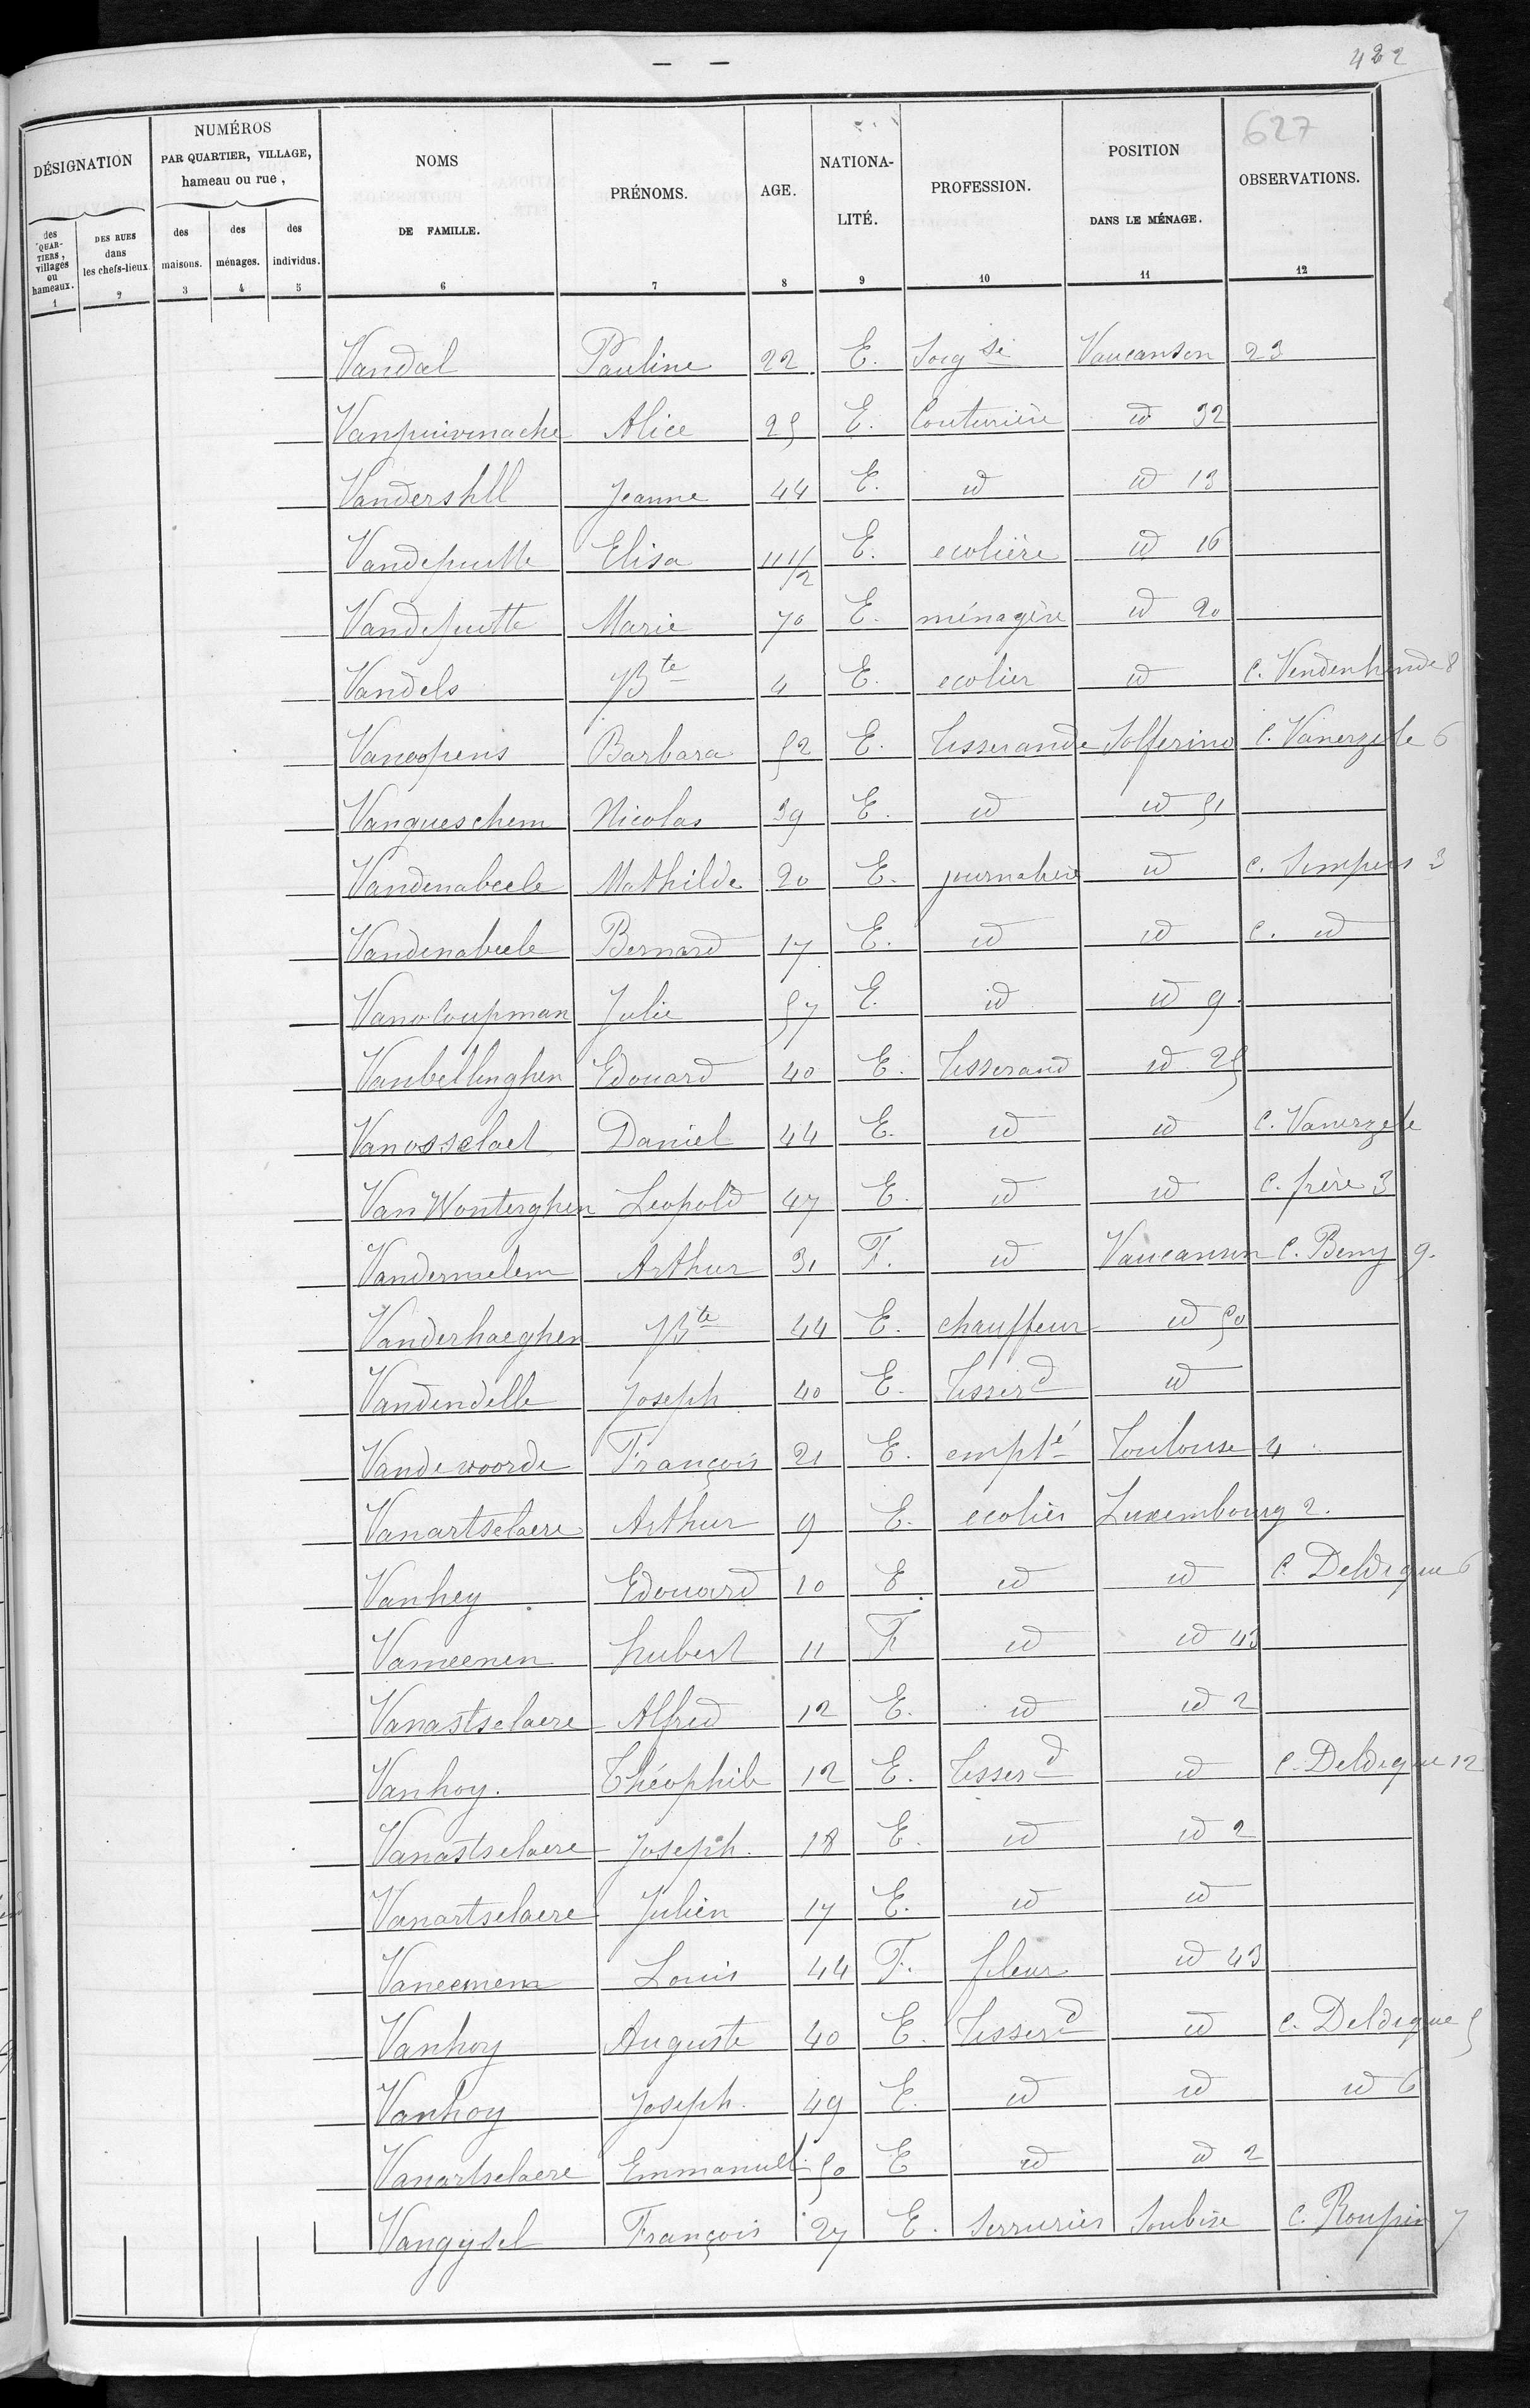 422
627
DÉSIGNATION
NUMÉROS
PAR QUARTIER, VILLAGE,
hameau ou rue,
NOMS
DE FAMILLE.
PRÉNOMS.
AGE.
NATIONA-
LITÉ.
PROFESSION.
POSITION
DANS LE MÉNAGE.
OBSERVATIONS.
des QUAR-TIERS, villages ou hameaux.
DES RUES dans les chefs-lieux
des maisons.
des ménages.
des individus.
1 2 3 4 5 6 7 8 9 10 11 12
Vandal Pauline 22 E. Vaucanson 23
Alice 25 E. Couturière id 32
Jeanne 44 E. id id 13
Vandeputte Elisa 11 1/2 E. ecolière id 16
Vandeputte Marie 70 E. ménagère id 20
Vandels JBte 4 E. ecolier id C. Vendenhende 8
Vanoopens Barbara 52 E. Tisserande Solferino C. Vanerzele 6
Vanqueschem Nicolas 39 E. id id 51
Vandenabeele Mathilde 20 E. journalière id C. Sempers 3
Vandenabeele Bernard 17 E. id id C. id
Vanocoupman Julie 57 E. id id 9
Vanbellinghen Edouard 40 E. Tisserand id 25
Vanosselael Daniel 44 E. id id C. Vanerzele
Van Wonterghen Leopold 47 E. id id C. frère 3
Vandermelem Arthur 31 F. id Vaucanson C. Bemy 9.
Vanderhaeghen JBte 44 E. chauffeur id 50
Vandendelle Joseph 40 E. Tisserd id
Vandewoorde François 21 E. emplé Toulouse 4
Vanartselaere Arthur 9 E. ecolier Luxembourg 2.
Vanhey Edouard 10 E id id C. Deldique 6
Vameenen hubert 11 F id id 43
Vanastselaere Alfred 12 E. id id 2
Vanhoy. Théophile 12 E. Tisserd id C. Deldique 12
Vanastselaere Joseph. 18 E. id id 2
Vanartselaere Julien 17 E. id id
Vaneemem Louis 44 F. fileur id 43
Vanhoy Auguste 40 E. Tisserd id C. Deldique 5
Vanhoy Joseph. 49 E. id id id 6
Vanartselaere Emmanuel 50 E id id 2
Vangysel François 27 E. Serrurier Soubise C. Roupin 7